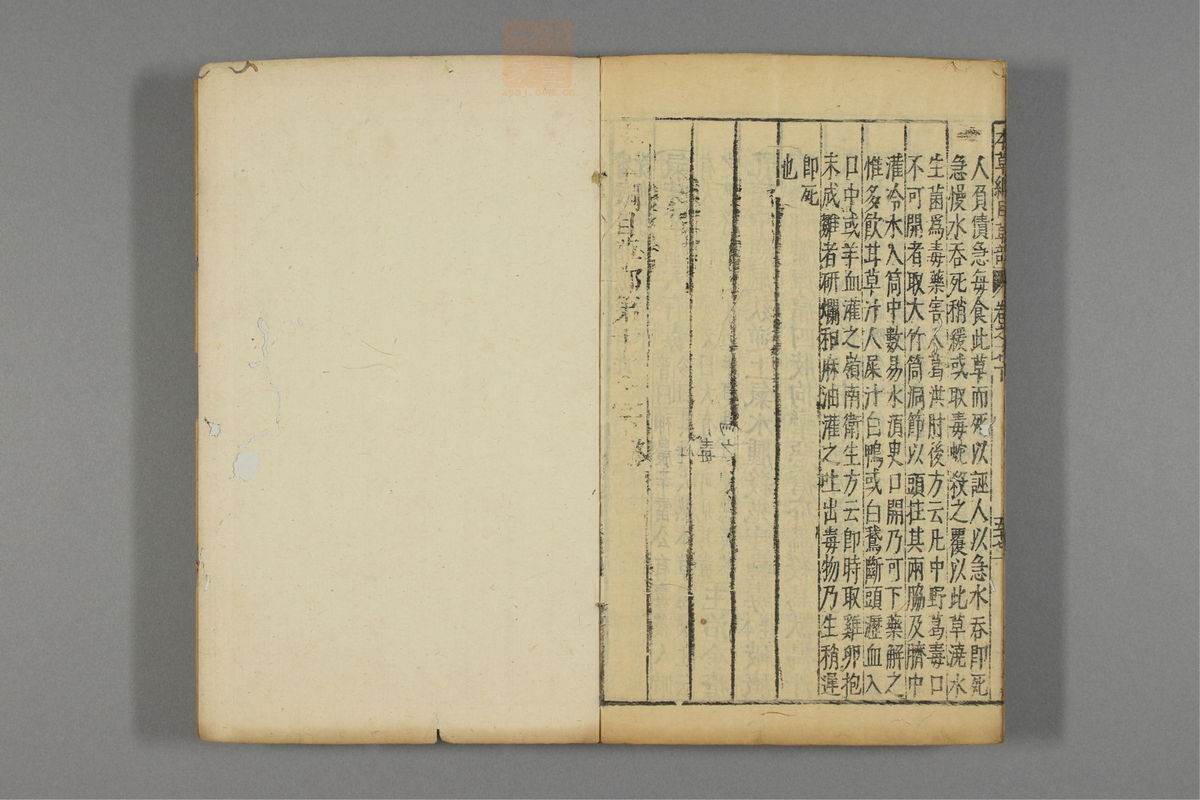 本草綱目草部 卷之十七下 五十七
人負債急每食此草而死以誣人以急水吞即死
急慢水吞死稍緩或取毒蛇殺之覆以此草澆水
生菌為毒藥害人葛洪肘後方云凡中野葛毒口
不可開者取大竹筒洞節以頭拄其兩脇及臍中
灌冷水入筒中數易水須臾口開乃可下藥解之
惟多飲甘草汁人屎汁白鴨或白鵞斷頭瀝血入
口中或羊血灌之嶺南衛生方云即時取雞卵抱
未成雛者研爛和麻油灌之吐出毒物乃生稍遲
即死
也
綱目草部第